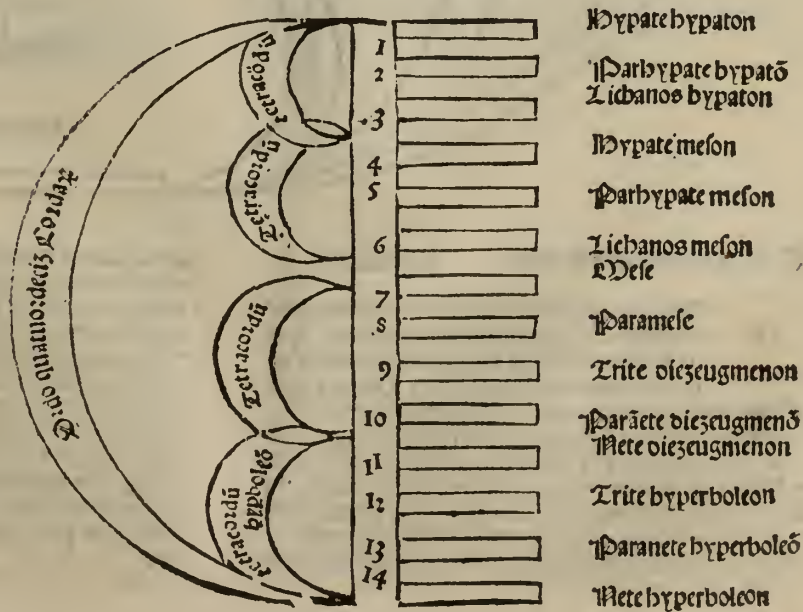 Ordo quatuordeciz Cordaꝝ
tetracoꝛdū
Tetracoꝛdū
Tetracoꝛdū
tetracoꝛdū
hyꝑboleō
1
2
3
4
5
6
7
8
9
10
11
12
13
14
Hypate hypaton
Parhypate hypatō
Lichanos hypaton
Hypate meſon
Parhypate meſon
Lichanos meſon
Meſe
Parameſe
Trite diezeugmenon
Parāete diezeugmenō
Nete diezeugmenon
Trite hyperboleon
Paranete hyperboleō
Nete hyperboleon